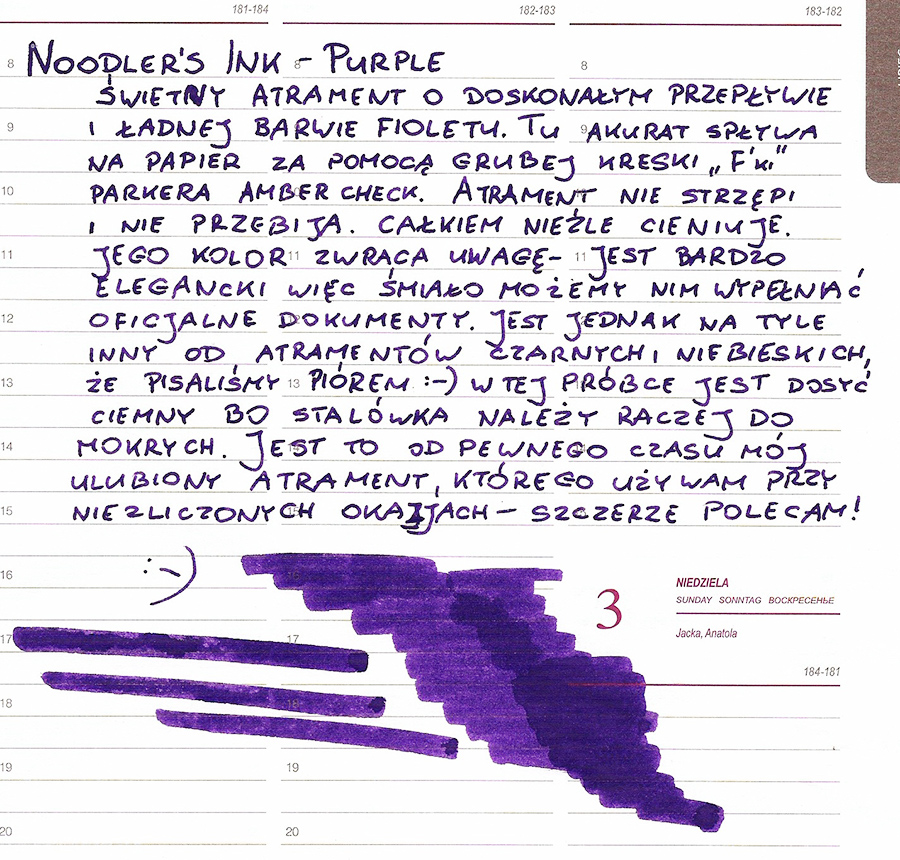 181-184 182-183 183-182
8 NOODLER'S INK – PURPLE 8 8
ŚWIETNY ATRAMENT O DOSKONAŁYM PRZEPŁYWIE
9 I ŁADNEJ BARWIE FIOLETU. TU 9 AKURAT SPŁYWA
NA PAPIER ZA POMOCĄ GRUBEJ KRESKI „F'ki"
10 PARKERA AMBER CHECK. ATRAMENT NIE STRZĘPI
I NIE PRZEBIJA. CAŁKIEM NIEŹLE CIENIUJE.
11 JEGO KOLOR 11 ZWRACA UWAGĘ – 11 JEST BARDZO
ELEGANCKI WIĘC ŚMIAŁO MOŻEMY NIM WYPEŁNIAĆ
12 OFICJALNE DOKUMENTY. JEST JEDNAK NA TYLE
INNY OD ATRAMENTÓW CZARNYCH I NIEBIESKICH,
13 ŻE PISALIŚMY 13 PIÓREM :-) W TEJ PRÓBCE JEST DOSYĆ
CIEMNY BO STALÓWKA NALEŻY RACZEJ DO
14 MOKRYCH. JEST TO OD PEWNEGO CZASU MÓJ
ULUBIONY ATRAMENT, KTÓREGO UŻYWAM PRZY
15 NIEZLICZONYCH OKAZJACH – SZCZERZE POLECAM!
:-)
16
3 NIEDZIELA
SUNDAY SONNTAG ВОСКРЕСЕНЬЕ
17 17 Jacka, Anatola
184-181
18 18
19 19
20 20